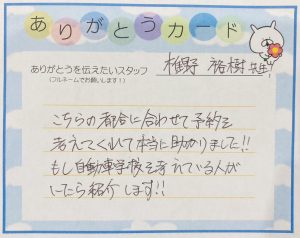 ありがとうカード
ありがとうを伝えたいスタッフ
(フルネームでお願いします!)
椎野 裕樹 先生
こちらの都合に合わせて予約を
考えてくれて本当に助かりました!!
もし自動車学校を考えている人が
いたら紹介します!!